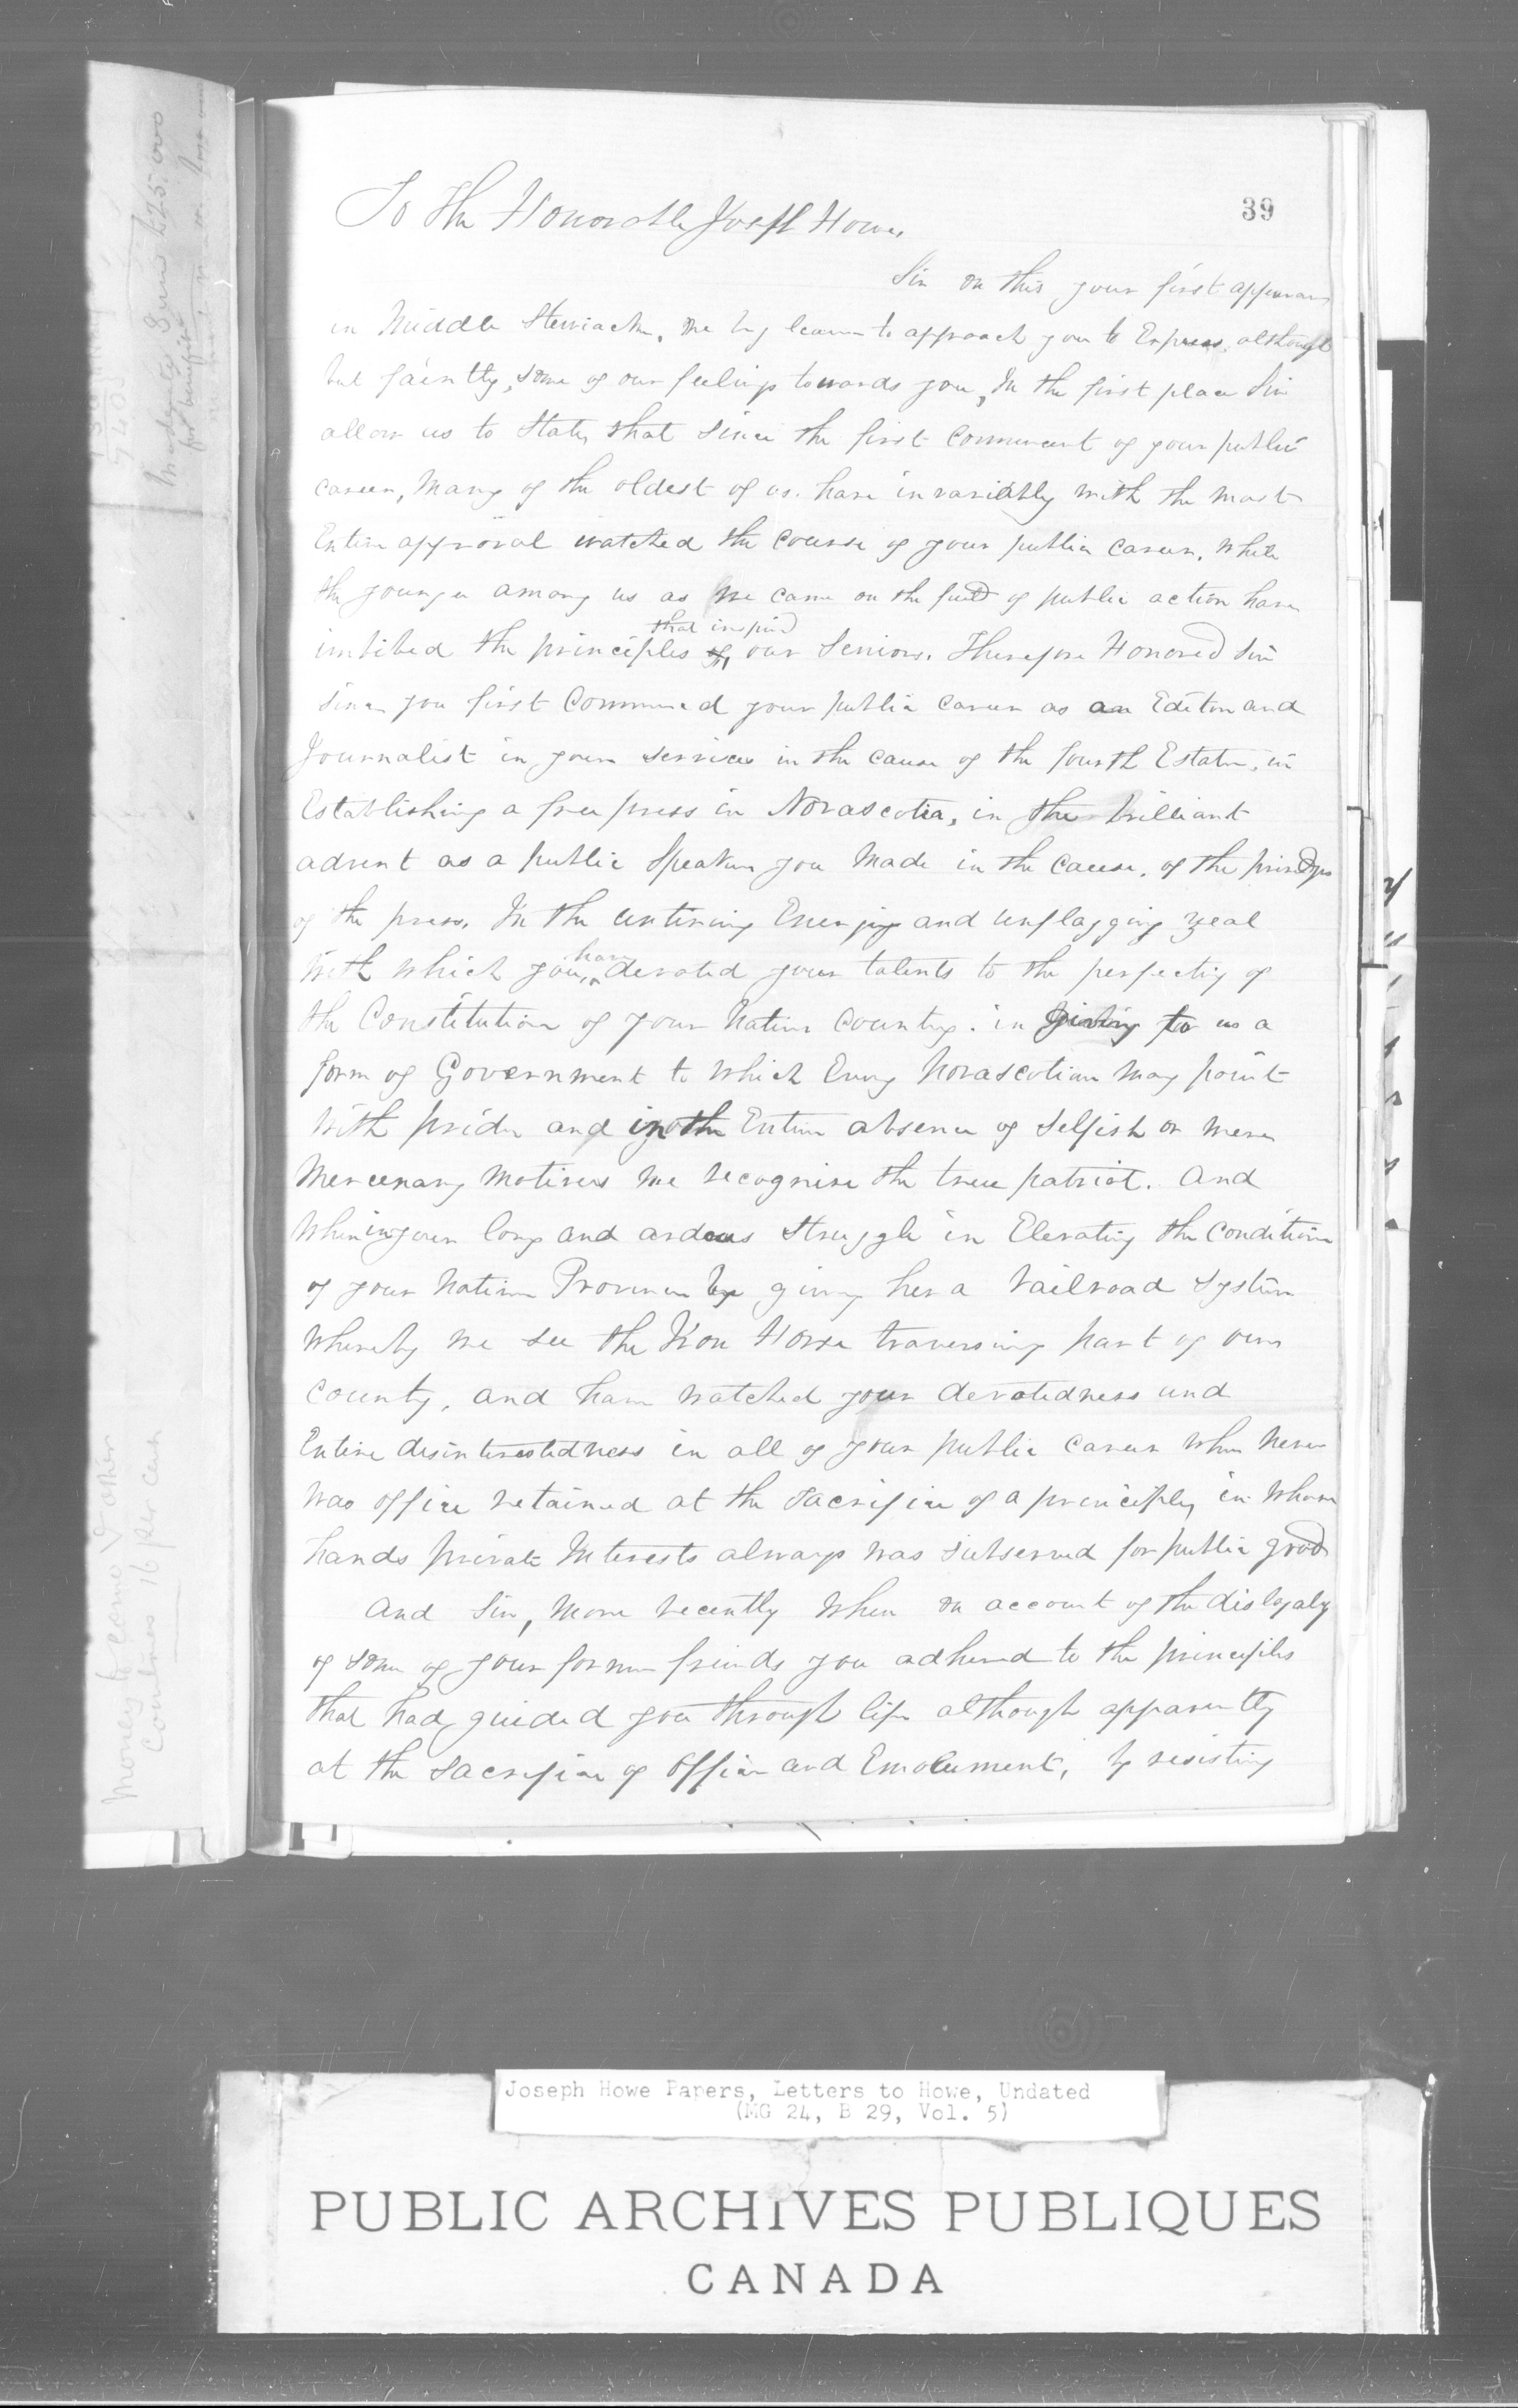 39
To The Honorable Joseph Howe,
Sir on this your first appearance
in Middle Stewiacke, we beg leave to approach you to Express, although
but faintly, some of our feelings towards you, In the first place Sir
allow us to State, that since the first Commencent of your public
career, Many of the oldest of us. have invariably with the most
Entire approval watched the course of your public career. While
the younger among us as we came on the field of public action have
that inspired
imbibed the principles of our Seniors. Therefore Honored Sir
since you first Commenced your public career as an Editor and
Journalist in your services in the cause of the fourth Estate, in
Establishing a free press in Novascotia, in the brilliant
advent as a public Speaker you Made in the cause, of the
of the press. In the untiring Energy and unflagging zeal
have
with which you, devoted your talents to the perfecting of
the Constitution of your Native Country. in giving to us a
form of Government to which Every Novascotian may point
with pride and in the Entire absence of Selfish or mere
Mercenary Motives we recognise the true patriot. And
when in your long and ardous Struggle in Elevating the Condition
of your Native Province by giving her a railroad System
Whereby we see the Iron Horse traversing part of our
County, and have watched your devotedness and
Entire disinterestedness in all of your public career when never
was office retained at the Sacrifice of a principle, in whose
hands private Interests always was subserved for public good
And Sir, More recently when on account of the disloyalty
of some of your former friends you adhered to the principles
that had guided you through life although apparently
at the Sacrifice of Office and Emolument, by resisting
£25,000
for benefits
Money & come
16 per cent
Joseph Howe Papers, Letters to Howe, Undated
(MG 24, B 29, Vol. 5)
PUBLIC ARCHIVES PUBLIQUES
CANADA